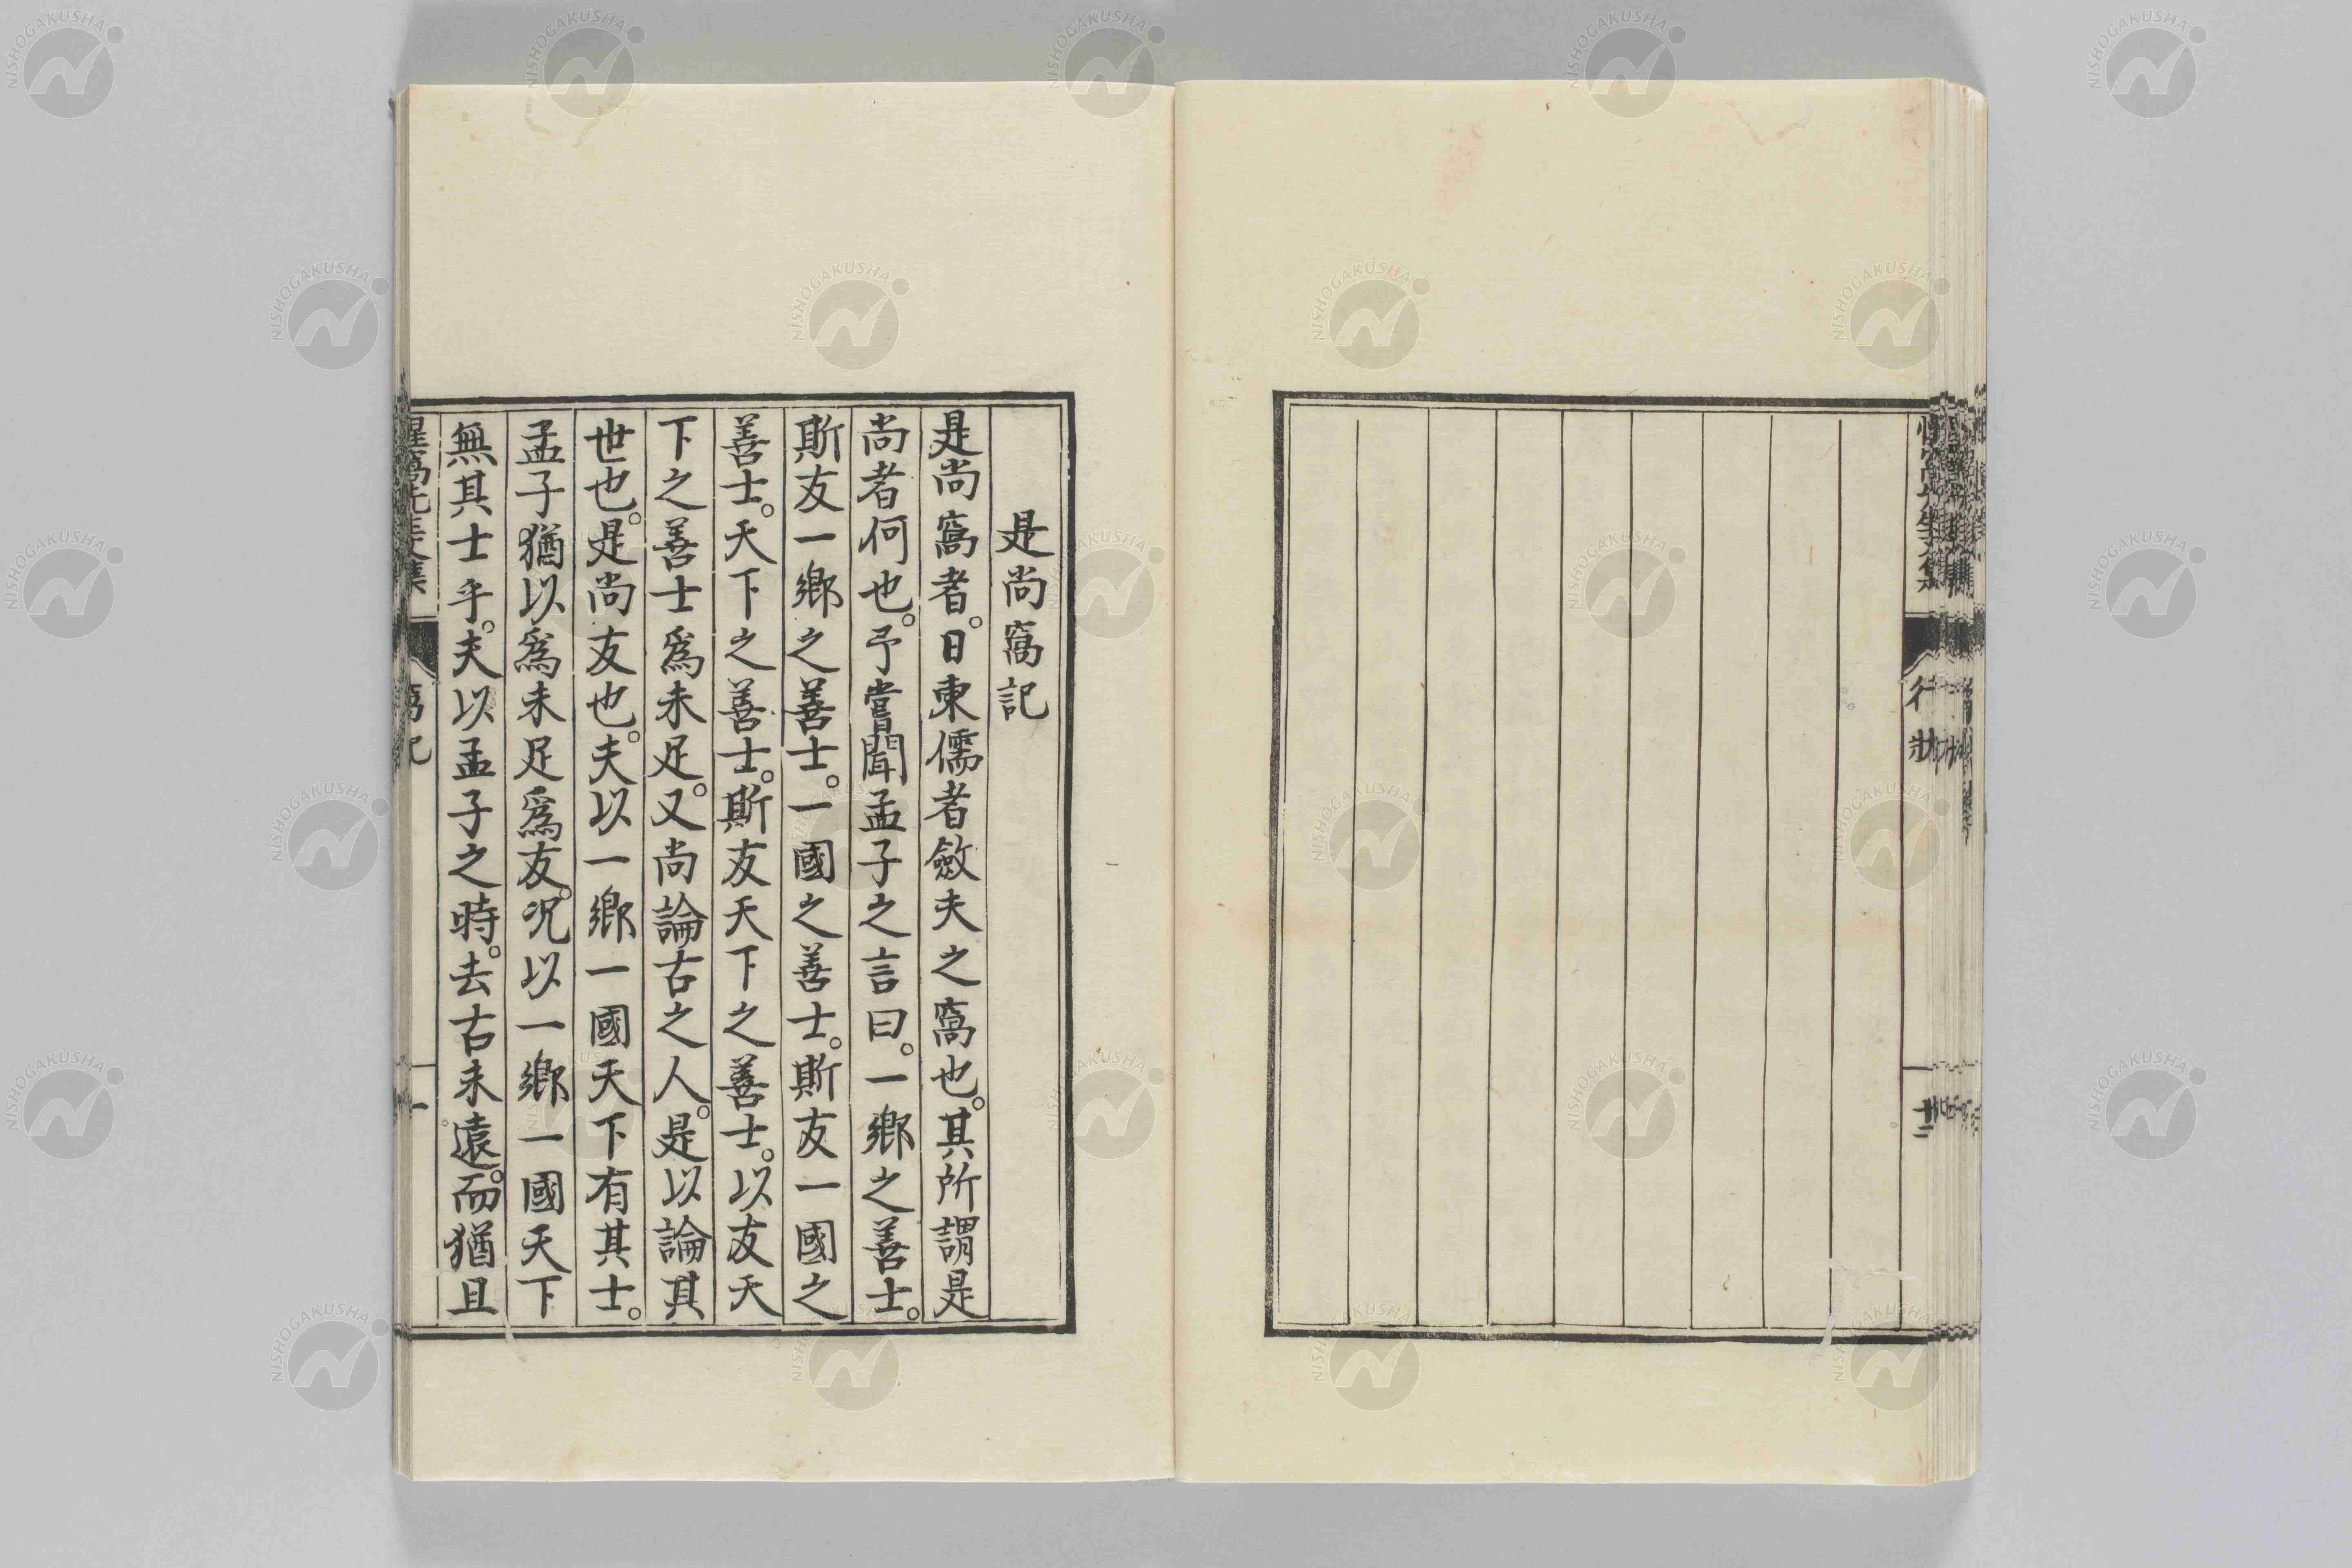 行狀
是尚窩記
是尚窩者。日東儒者斂夫之窩也。其所謂是
尚者何也。予嘗聞孟子之言曰。一鄉之善士。
斯友一鄉之善士。一國之善士。斯友一國之
善士。天下之善士。斯友天下之善士。以友天
下之善士爲未足。又尚論古之人。是以論其
世也。是尚友也。夫以一鄉一國天下有其士。
孟子猶以爲未足爲友。况以一鄉一國天下
無其士乎。夫以孟子之時。去古未遠。而猶且
NISHOGAKUSHA